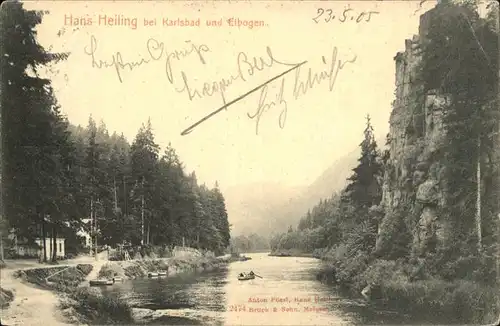 Hans Heiling bei Karlsbad und Elbogen.
23.5.05
Besten Gruß
Fritz
Anton Pöschl, Hans Heiling
2474 Brück & Sohn, Meissen